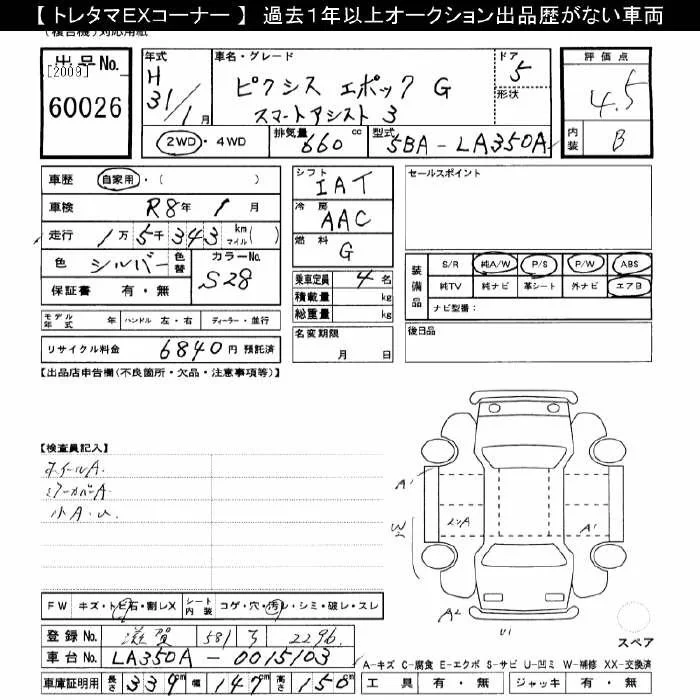 【トレタマEXコーナー】 過去1年以上オークション出品歴がない車両
(複合機)対応用紙
出品No.
[2009]
60026
年式
H
31/1月
車名・グレード
ピクシス エポック G
スマートアシスト 3
ドア
5
形状
評価点
4.5
内装
B
2WD・4WD
排気量
660 cc
型式
5BA-LA350A
車歴 自家用・( )
車検 R8年 1月
走行 1万5千343 km マイル( )
色 シルバー 色替 カラーNo. S28
保証書 有・無
シフト
IAT
冷房
AAC
燃料
G
乗車定員 4名
積載量 kg
総重量 kg
セールスポイント
装備品
S/R 純A/W P/S P/W ABS
純TV 純ナビ 革シート 外ナビ エアB
ナビ型番:
モデル年式 年 ハンドル 左・右 ディーラー・並行
名変期限
月 日
後日品
リサイクル料金 6840円 預託済
【出品店申告欄(不良箇所・欠品・注意事項等)】
【検査員記入】
ホイールA.
ミラーカバーA
小A.U.
A'
A'
A2
U1
FW キズ・トビ石・割レX シート内装 コゲ・穴・汚レ・シミ・破レ・スレ
登録No. 滋賀 581 う 2296
車台No. LA350A-0015103
スペア
A-キズ C-腐食 E-エクボ S-サビ U-凹ミ W-補修 XX-交換済
車庫証明用 長さ 339cm 幅 147cm 高さ 150cm
工具 有・無 ジャッキ 有・無